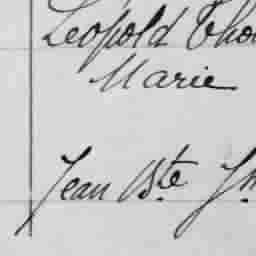 Léopold Tho
Marie
Jean Bte Jh